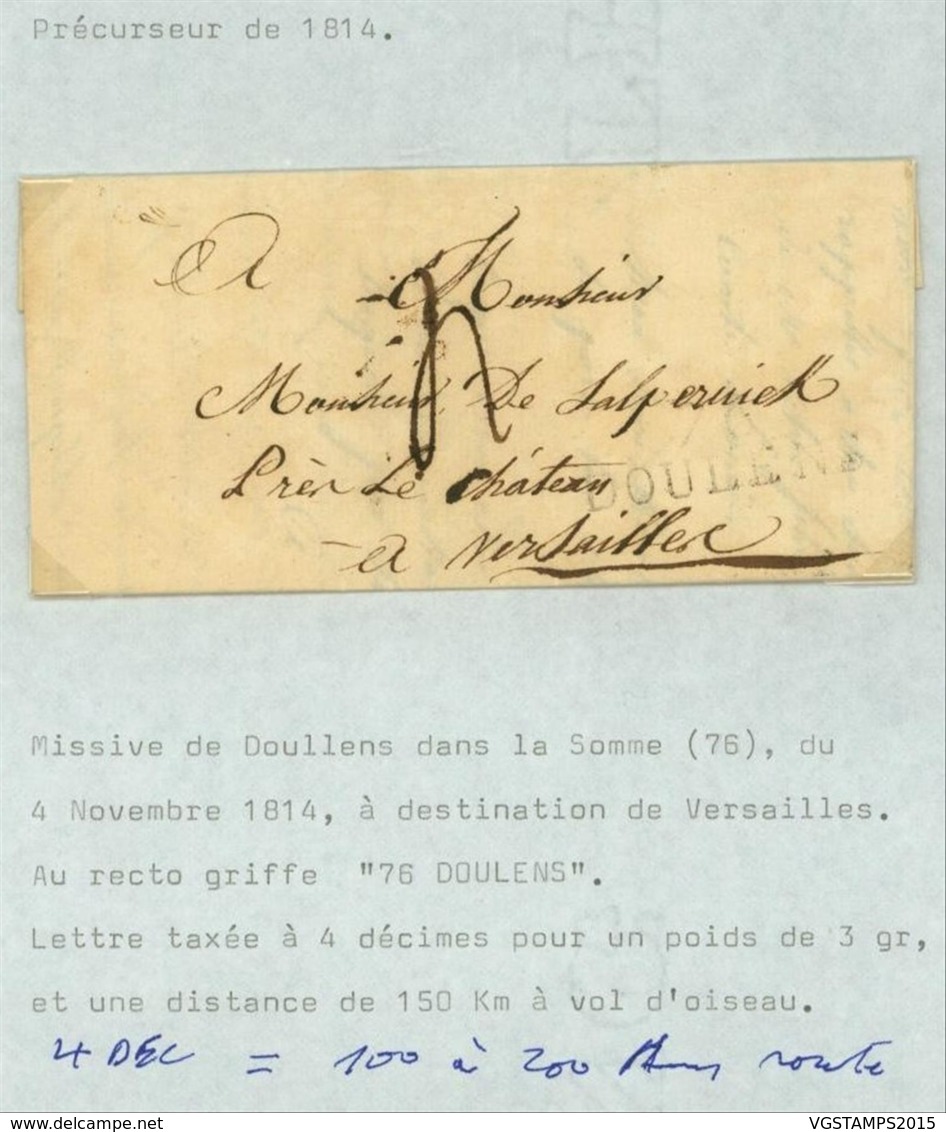 Précurseur de 1814.
A
Monsieur
4
Monsieur De Salpervick
Près Le château
DOULENS
a Versailles
Missive de Doullens dans la Somme (76), du
4 Novembre 1814, à destination de Versailles.
Au recto griffe "76 DOULENS".
Lettre taxée à 4 décimes pour un poids de 3 gr,
et une distance de 150 Km à vol d'oiseau.
4 DEC = 100 à 200 Kms route
VGSTAMPS2015